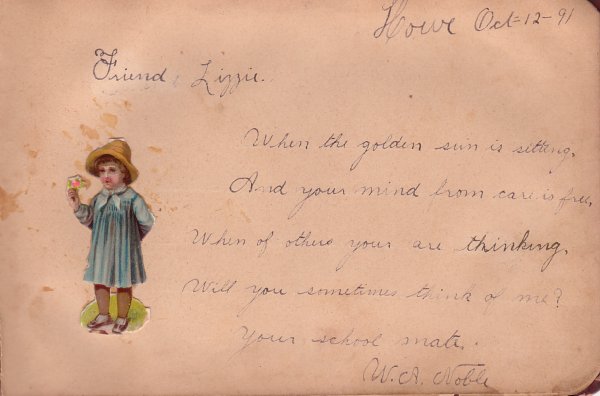 Howe Oct-12-91
Friend Lizzie.
When the golden sun is setting,
And your mind from care is free,
When of others your are thinking,
Will you sometimes think of me?
Your school mate.
W. A. Noble